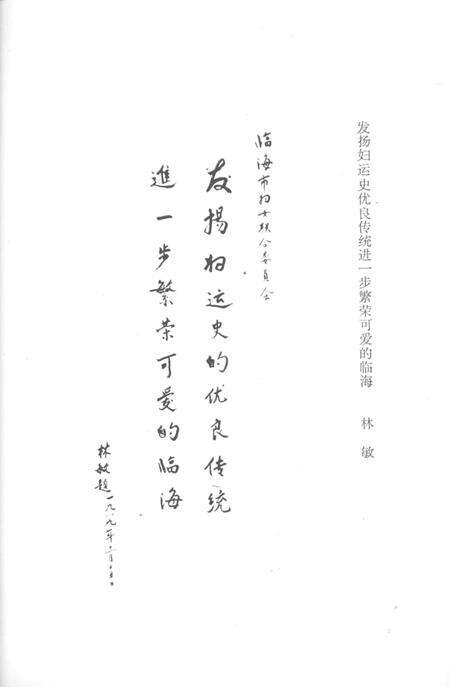 发扬妇运史优良传统进一步繁荣可爱的临海 林敏
临海市妇女联合委员会
发揚妇运史的优良传统
進一步繁荣可爱的临海
林敏题一九八九年二月